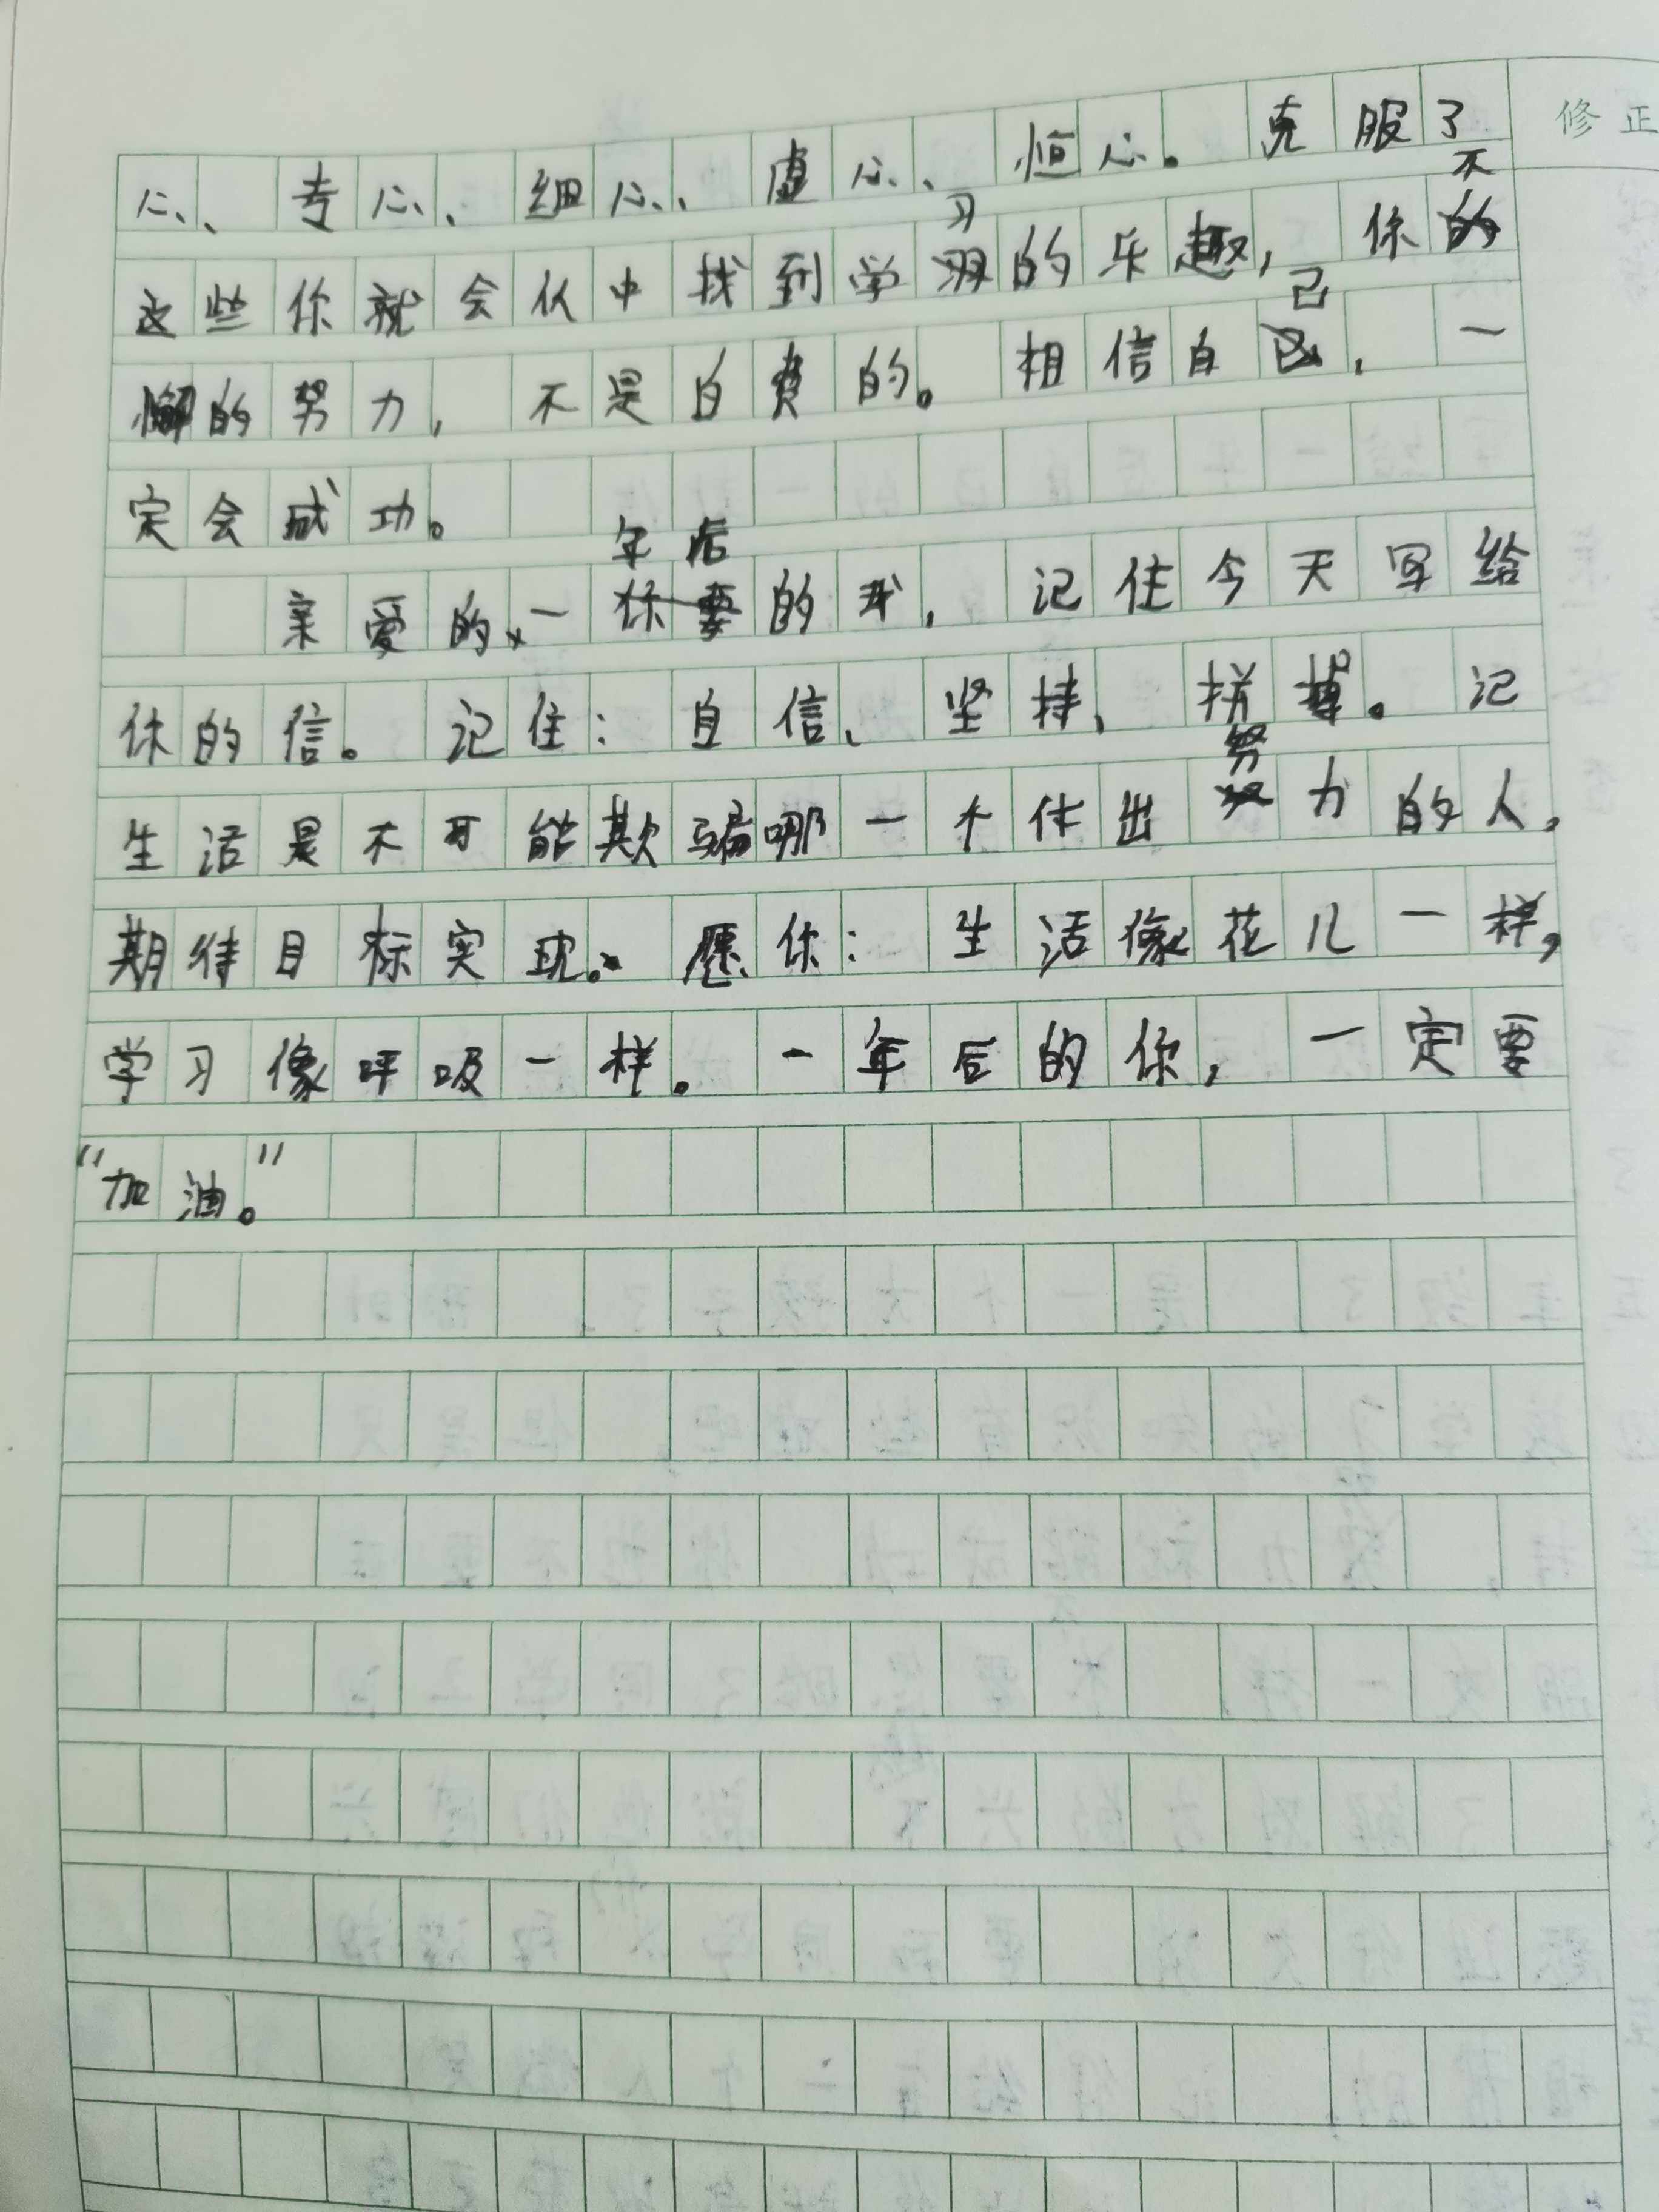 修正
心、专心、细心、虚心、恒心。克服了
这些你就会从中找到学习的乐趣，你不
懈的努力，不是白费的。相信自己，一
定会成功。
亲爱的一年后的我，记住今天写给
你的信。记住：自信、坚持、拼搏。记
生活是不可能欺骗哪一个付出努力的人，
期待目标实现。愿你：生活像花儿一样，
学习像呼吸一样。一年后的你，一定要
“加油。”